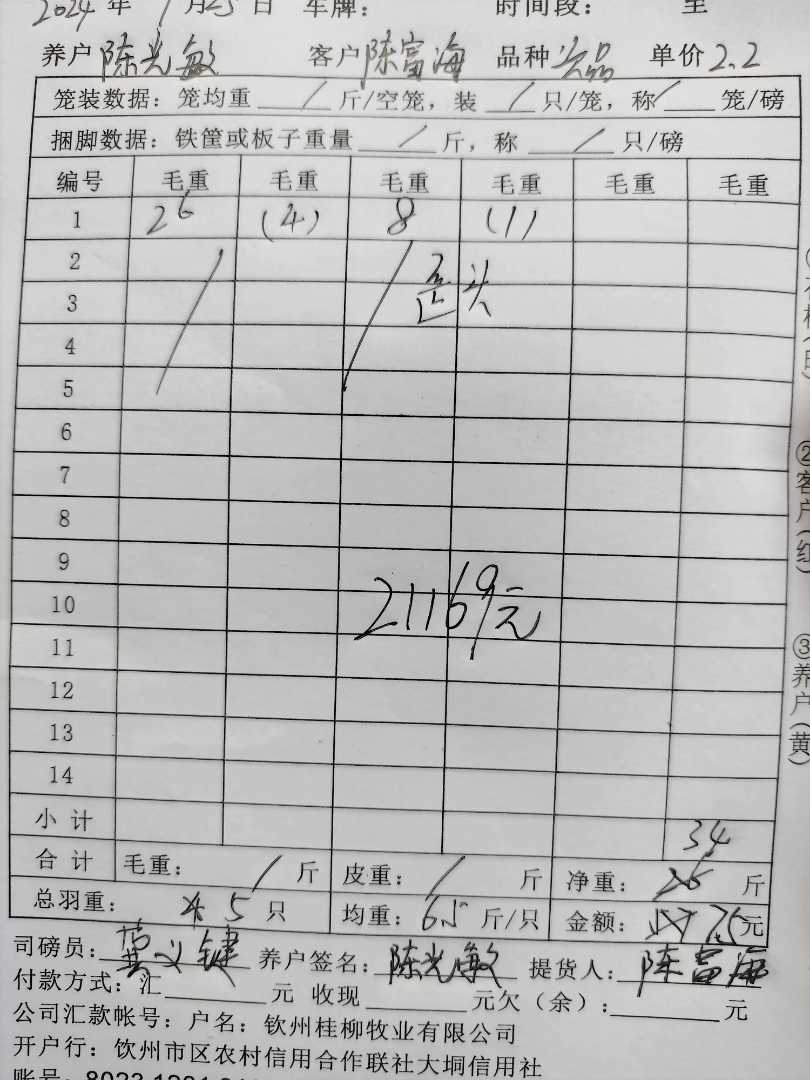 2024 年 1 月25 日 车牌： 时间段： 至
养户 陈光敏 客户 陈富海 品种 次品 单价 2.2
笼装数据：笼均重 / 斤/空笼，装 / 只/笼，称 / 笼/磅
捆脚数据：铁筐或板子重量 / 斤，称 / 只/磅
编号 毛重 毛重 毛重 毛重 毛重 毛重
1 26 (4) 8 (1)
2
歪头
3
4
5
6
7
8
9
21169元
10
11
12
13
14
小 计 34
合 计 毛重： / 斤 皮重： / 斤 净重： 斤
总羽重： 5 只 均重： 6.5 斤/只 金额： 75元
司磅员： 义键 养户签名： 陈光敏 提货人： 陈富海
付款方式：汇 元 收现 元欠（余）： 元
公司汇款帐号：户名：钦州桂柳牧业有限公司
开户行：钦州市区农村信用合作联社大垌信用社
账号：8023
②客户(红)
③养户(黄)